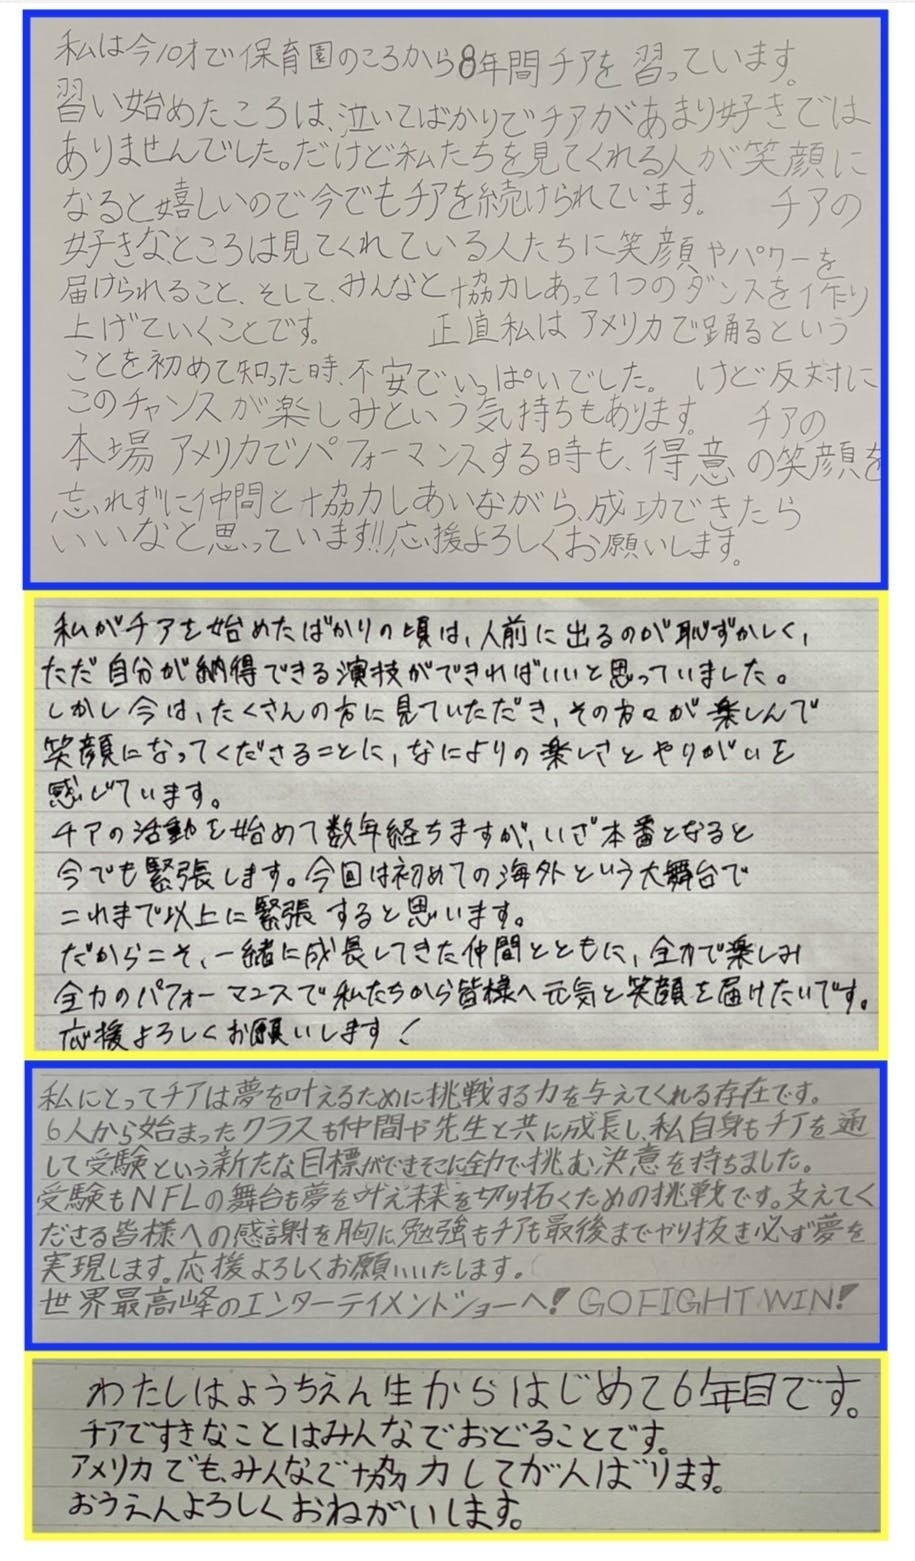 私は今10才で保育園のころから8年間チアを習っています。
習い始めたころは、泣いてばかりでチアがあまり好きでは
ありませんでした。だけど私たちを見てくれる人が笑顔に
なると嬉しいので今でもチアを続けられています。 チアの
好きなところは見てくれている人たちに笑顔やパワーを
届けられること、そして、みんなと協力しあって1つのダンスを作り
上げていくことです。 正直私はアメリカで踊るという
ことを初めて知った時、不安でいっぱいでした。 けど反対に
このチャンスが楽しみという気持ちもあります。 チアの
本場アメリカでパフォーマンスする時も、得意の笑顔を
忘れずに仲間と協力しあいながら、成功できたら
いいなと思っています!!応援よろしくお願いします。
私がチアを始めたばかりの頃は、人前に出るのが恥ずかしく、
ただ自分が納得できる演技ができればいいと思っていました。
しかし今は、たくさんの方に見ていただき、その方々が楽しんで
笑顔になってくださることに、なによりの楽しさとやりがいを
感じています。
チアの活動を始めて数年経ちますが、いざ本番となると
今でも緊張します。今回は初めての海外という大舞台で
これまで以上に緊張すると思います。
だからこそ、一緒に成長してきた仲間とともに、全力で楽しみ
全力のパフォーマンスで私たちから皆様へ元気と笑顔を届けたいです。
応援よろしくお願いします!
私にとってチアは夢を叶えるために挑戦する力を与えてくれる存在です。
6人から始まったクラスも仲間や先生と共に成長し、私自身もチアを通
して受験という新たな目標ができそこに全力で挑む決意を持ちました。
受験もNFLの舞台も夢を叶え未来を切り拓くための挑戦です。支えてく
ださる皆様への感謝を胸に、勉強もチアも最後までやり抜き必ず夢を
実現します。応援よろしくお願いいたします。
世界最高峰のエンターテイメントショーへ! GO FIGHT WIN!
わたしはようちえん生からはじめて6年目です。
チアですきなことはみんなでおどることです。
アメリカでも、みんなで協力してがんばります。
おうえんよろしくおねがいします。